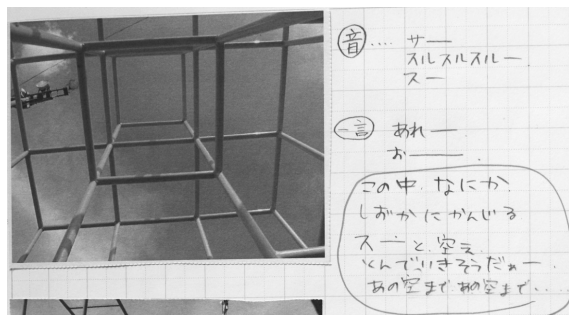 音.... サー
スルスルスルー
スー
一言 あれー
おー.
この中、なにか
しずかにかんじる
スーと、空え
とんでいきそうだぁー.
あの空まで、あの空まで.....